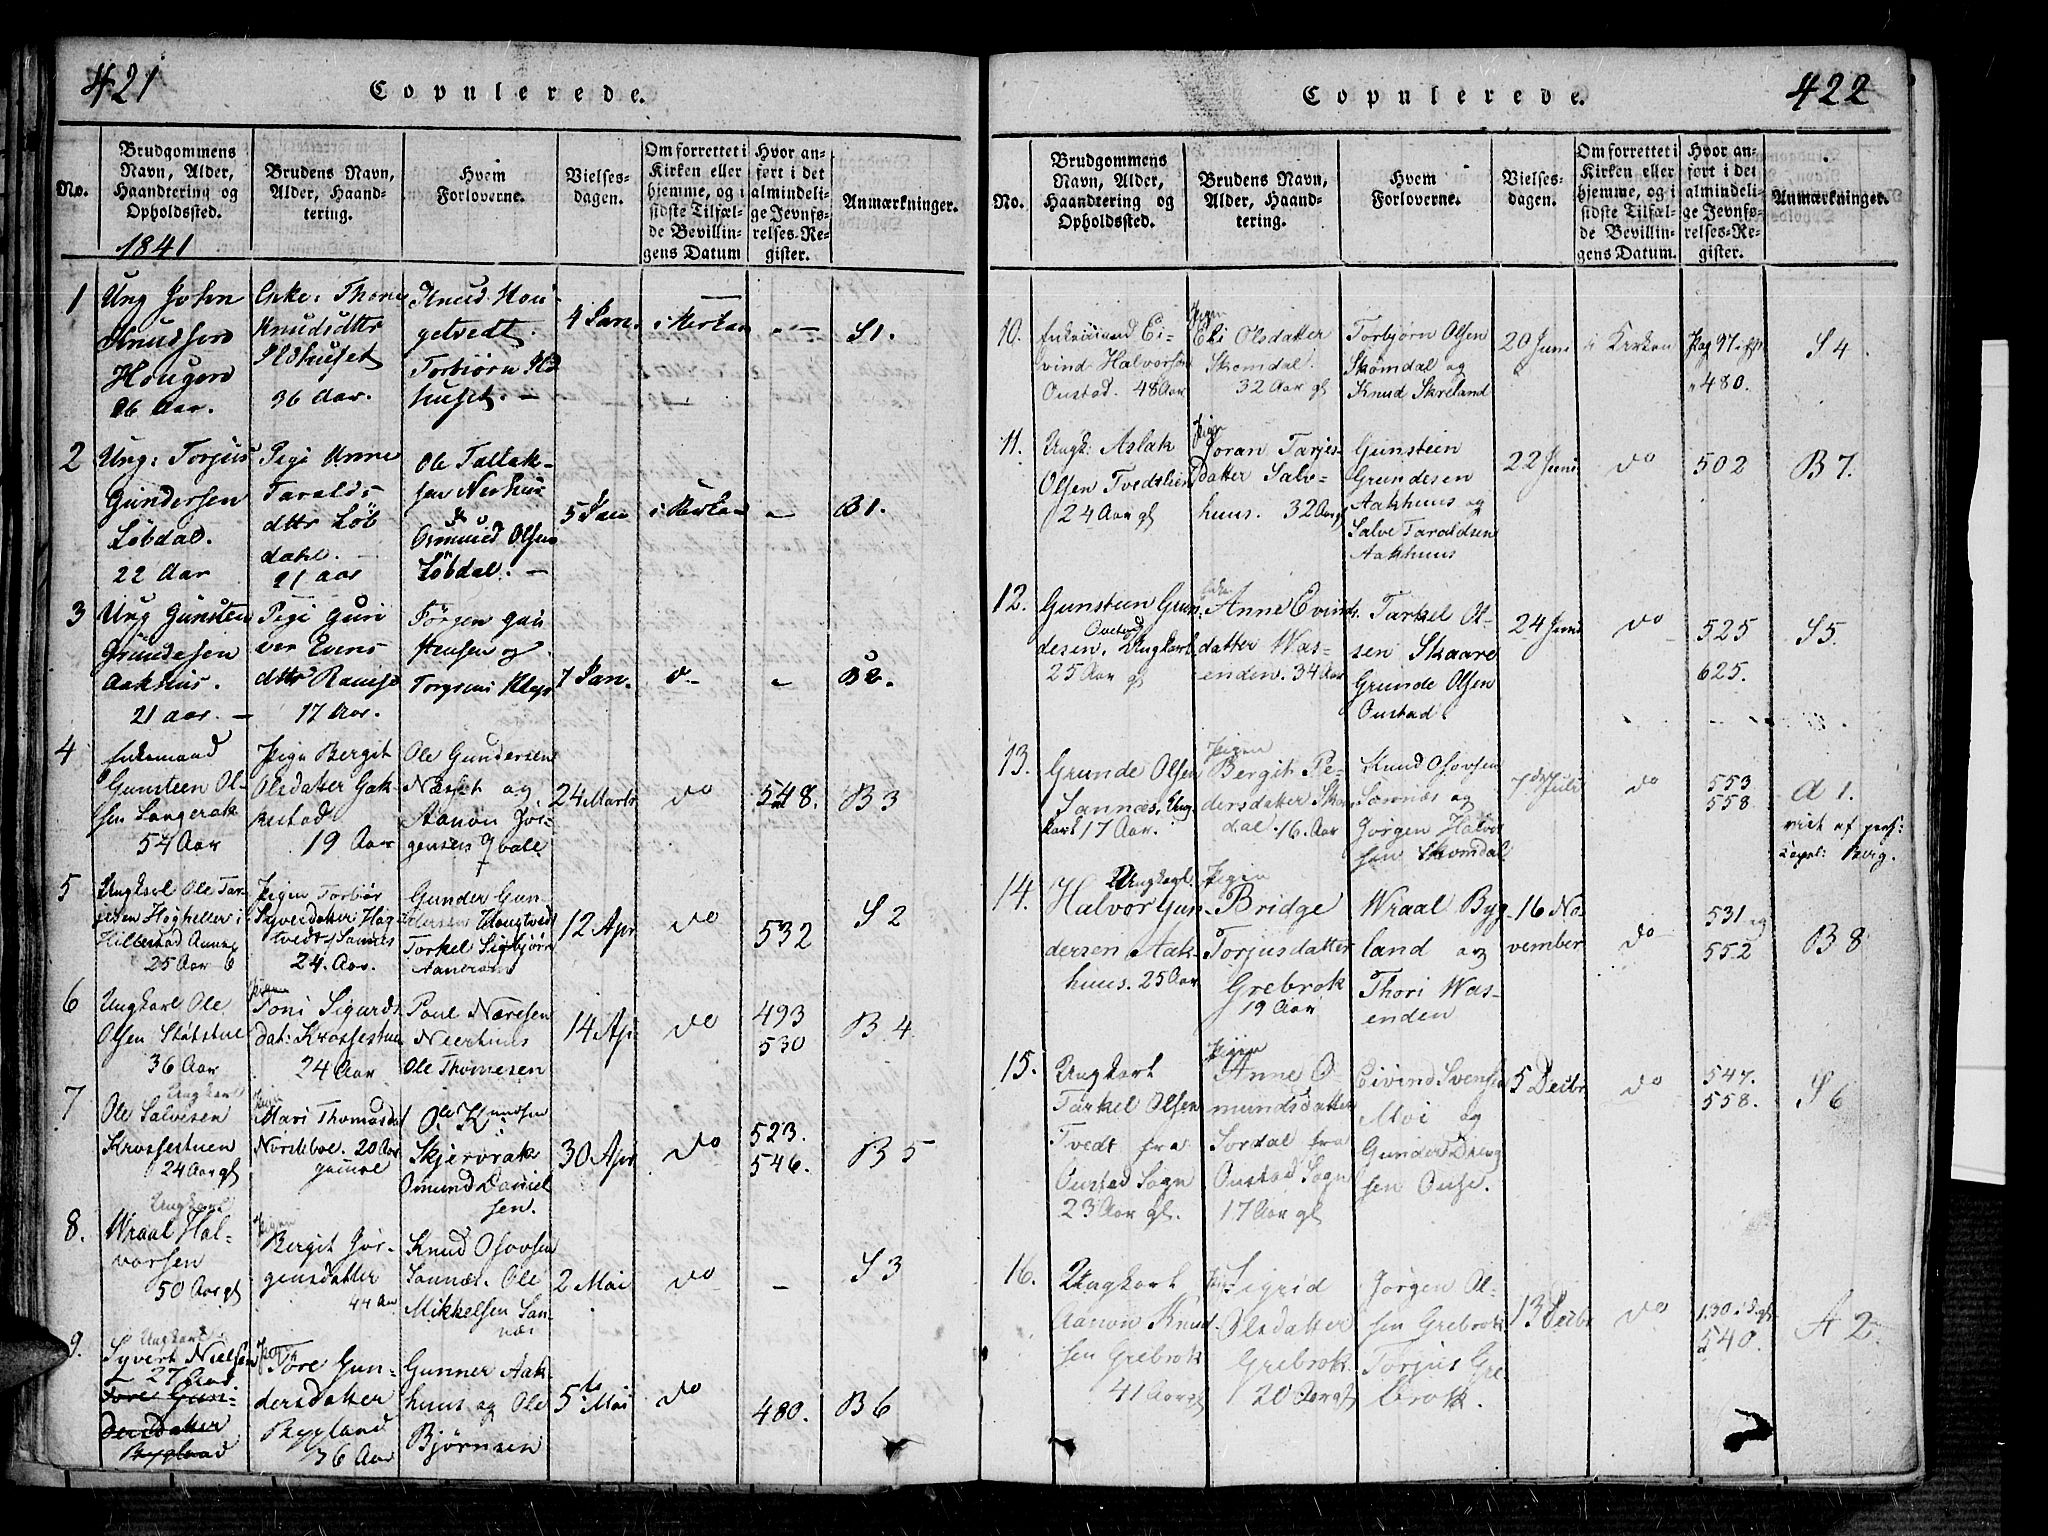 421
Copulerede.
No.
Brudgommens
Navn, Alder,
Haandtering og
Opholdssted.
1841
Brudens Navn,
Alder, Haand-
tering.
Hvem
Forloverne.
Vielses-
dagen.
Om forrettet i
Kirken eller
hjemme, og i
sidste Tilfæl-
de Bevillin-
gens Datum
Hvor an-
ført i det
almindeli-
ge Jevnfø-
relses-Re-
gister.
Anmærkninger.
1
Ung John
Knudsen
Hougen
26 Aar.
Enke: Thone
Knudsdttr
Ildhuset
36 Aar.
Knud Hou-
getvedt.
Torbiørn Ild
huset. —
4 Jan.
i Kirken
S 1.
2
Ung: Torjus
Gundersen
Løbdal.
22 Aar
Pige Anne
Taralds-
dttr Løb
dahl. —
21 Aar
Ole Tallak-
sen Nerhus
Osmund Olsen
Løbdal. —
5 Jan
i Kirken
B 1.
3
Ung Gunsten
Grundesen
Aakhus.
21 Aar. —
Pige Guri
17 Aar.
Jørgen
Hensen og
7 Jan.
B 2.
4
Enkemand
Gunsteen Ol-
sen Langerak
54 Aar
Pige Bergit
Olsdatter
19 Aar
Ole Gundersen
Næset og
Aanon Jør-
gensen
24 Marts
do
548.
B 3
5
Ungkarl Ole Tar-
jesen
25 Aar
Pigen Torbiør
Syverdatter Høg
tvedt
24. Aar.
Gunder Gun-
dersen Haugtvedt
Torkel Sigbjørn
12 Apr
do
532
S 2
6
Ungkarl Ole
Olsen
36 Aar
Pigen
Toni Sigurds
dat: Krossestuen
24 Aar
Poul Næresen
Neerhuus
Ole Thomesen
14 Apr
do
493
530
B 4.
7
Ungkarl
Ole Salvesen
Krossestuen
24 Aar gl
Pigen
Mari Thomasdat
20 Aar
gammel
Ole Knudsen
Skjervrak
Omund Daniel
sen.
30 Apr
do
523.
546.
B 5
8.
Ungkarl
Wraal Hal-
vorsen
50 Aar gl
Pigen
Bergit Jør-
gensdatter
44 Aar
Knud Osovsen
Sannæs. Ole
Mikkelsen San-
næs
2 Mai
do
—
S 3
9.
Ungkarl
Syvert Nielsen
27 Aar
Tore Gun-
dersdatter
Bygland
Pigen
Tore Gun-
dersdatter
Bygland
36 Aar
Gunner Aak-
huus og Ole
Bjørnsen
5te
Mai
do
480.
B 6
422
Copulerede.
No.
Brudgommens
Navn, Alder,
Haandtering og
Opholdssted.
Brudens Navn,
Alder, Haand-
tering.
Hvem
Forloverne.
Vielses-
dagen.
Om forrettet i
Kirken eller
hjemme, og i
sidste Tilfæl-
de Bevillin-
gens Datum.
Hvor an-
ført i det
almindeli-
ge Jevnfø-
relses-Re-
gister.
Anmærkninger.
10.
Enkemand Ei-
vind Halvorsen
Oustad. 48 Aar
Pigen
Eli Olsdatter
Skomdal.
32 Aar gl
Torbjørn Olsen
Skomdal og
Knud Skreland
20 Juni
i Kirken
Pag 97
480.
S 4
11.
Ungk: Aslak
Olsen Tvedtlien
24 Aar gl
Pigen
Joran Tarjes-
datter Salve-
huus. 32 Aar gl
Gunsteen
Grundesen
Aakhuus og
Salve Taraldsen
Aakhuus
22 Juni
do
502
B 7.
12.
Gunsteen Grun-
Oustad
desen. Ungkarl
25 Aar gl
Enke
Anne Evinds-
datter Was-
enden. 34 Aar
Tarkel Ol-
sen Skaare
Grunde Olsen
Oustad.
24 Juni
do
525
625.
S 5
13.
Grunde Olsen
Sannæs. Ung-
karl 17 Aar.
Pigen
Bergit Pe-
dersdatter Skom
dal. 16. Aar
Knud Osovsen
Sannæs og
Jørgen Halvor
sen Skomdal
7de Juli
do
553
558.
A 1.
viet af pers:
Capel: Berg.
14.
Ungkarl.
Halvor Gun-
dersen Aak-
huus. 25 Aar
Pigen
Bridge
Torjusdatter
Grebrok
19 Aar
Wraal Byg-
land og
Thori Was-
enden
16 No-
vember
do
531 og
552
B 8
15.
Ungkarl
Tarkel Olsen
Tvedt fra
Oustad Sogn
23 Aar gl.
Pigen
Anne O-
mundsdatter
Sordal fra
Oustad Sogn
17 Aar gl
Eivind Svensen
Moi og
Gunder Dreng
sen Ouse.
5 Decbr
do
547.
558.
S 6
16.
Ungkarl
Aanon Knud-
sen Grebrok
41 Aar gl
Sigrid
Olsdatter
Grebrok
20 Aar gl
Jørgen Ol-
sen Grebrok
Torjus Gre
brok.
13 Decbr
do
130.
540.
A 2.